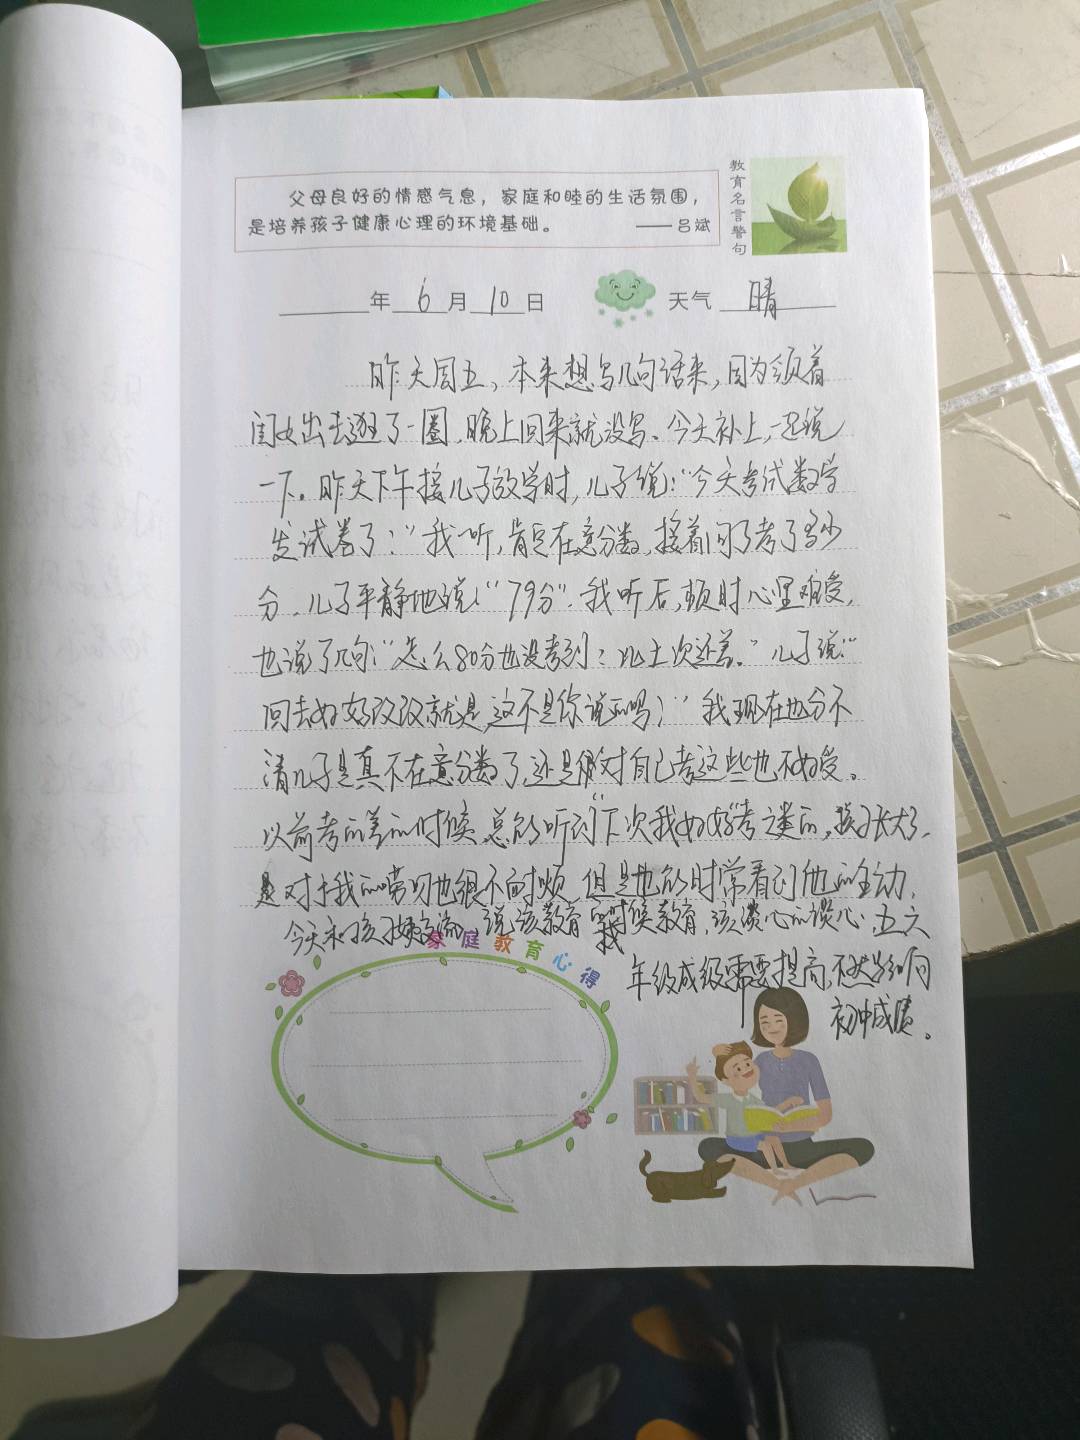 父母良好的情感气息，家庭和睦的生活氛围，
是培养孩子健康心理的环境基础。 ——吕斌
教育名言警句
年 6 月 10 日 天气 晴
昨天周五，本来想写几句话来，因为领着
闺女出去逛了一圈，晚上回来就没写、今天补上，一起说
一下。昨天下午接儿子放学时，儿子说："今天考试数学
发试卷了："我一听，肯定在意分数，接着问了考了多少
分、儿子平静地说："79分"．我听后，顿时心里难受，
也说了几句："怎么80分也没考到？比上次还差．"儿子说："
回去好好改改就是，这不是你说的吗？"我现在也分不
清儿子是真不在意分数了，还是 对自己考这些也不好受。
以前考的差的时候，总能听到"下次我好好考"之类的，孩子长大了，
是对于我的劳叨也很不耐烦，但是也能时常看到他的主动，
今天和孩子 交流，说该教育的时候教育，该谈心的谈心，五六
我
年级成级需要提高，不然影响
初中成绩。
家庭教育心得